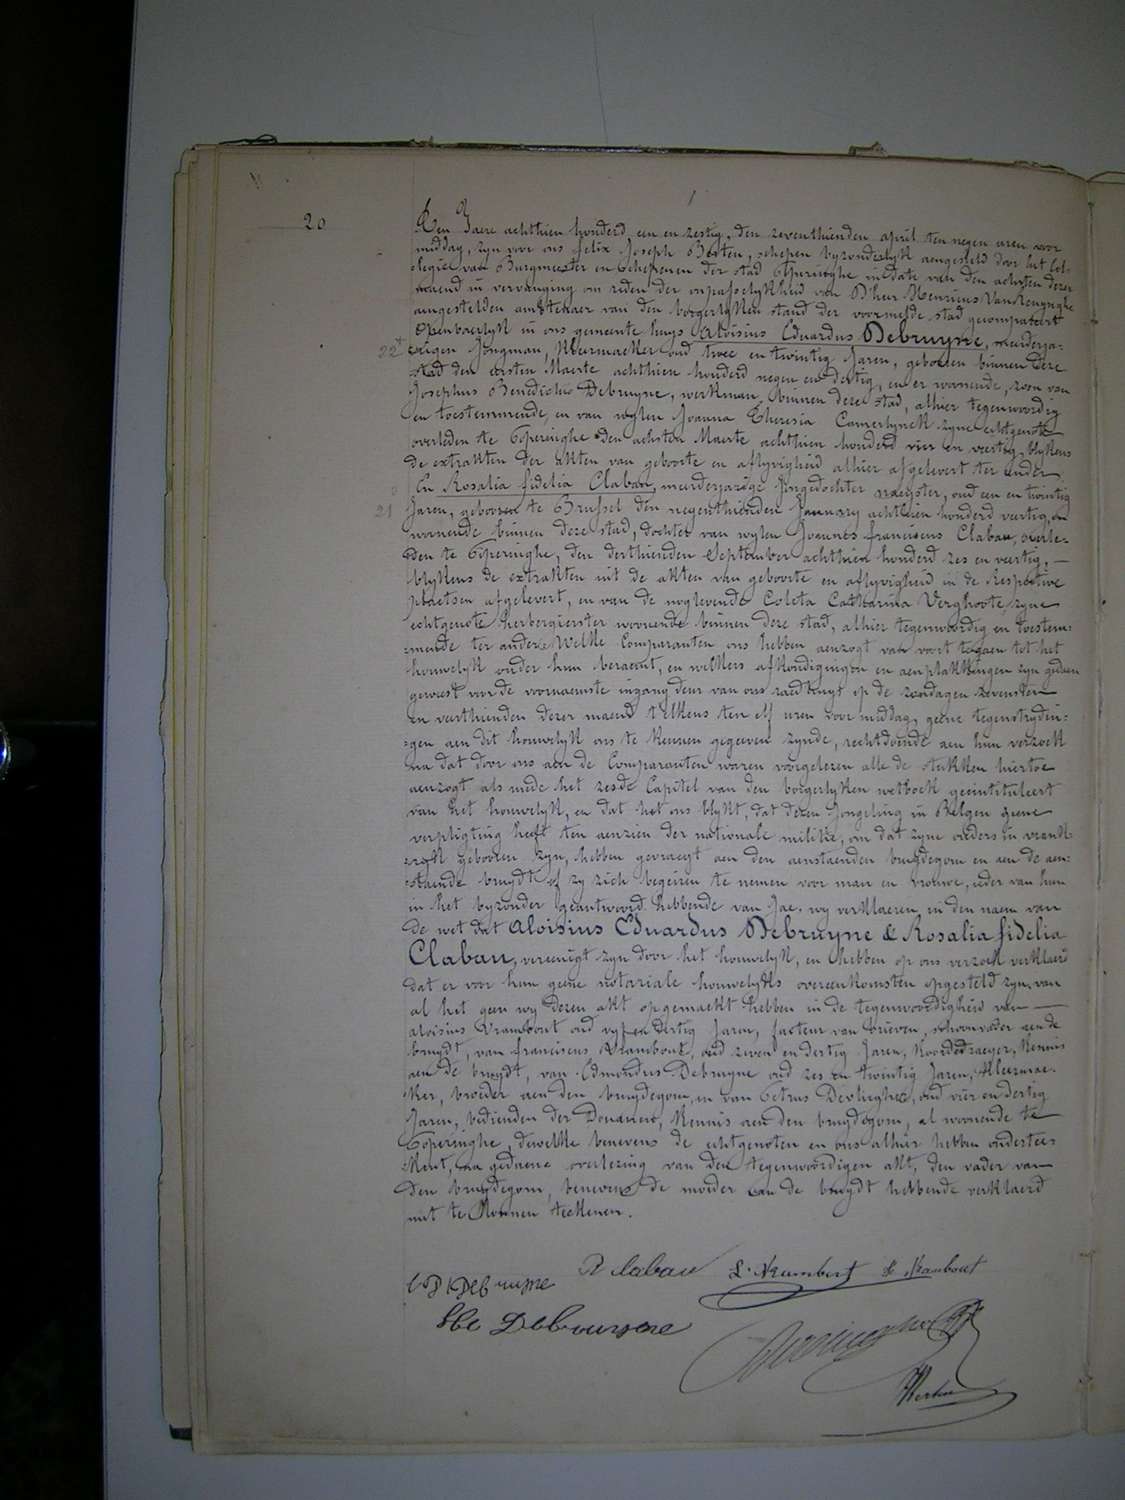 20
Den Jaere achthien honderd een en zestig, den zeventhienden april ten negen uren voor
middag, zyn voor ons Felix Joseph Berten, schepen byzonderlyk aengesteld door het Col-
legie van Burgmeester en Schepenen der stad Poperinghe in date van den achsten dezer
maend in vervanging om reden der onpasselykheid van D'heer Henricus Van Renynghe
aengestelden ambtenaer van den borgerlyken stand der voormelde stad gecompareert
Openbaerlyk in ons gemeente huys Aloisius Eduardus Debruyne, meerderja-
22 zarigen Jongman, kleermaeker oud twee en twintig Jaren, geboren binnen deze
stad den eersten Maerte achthien honderd negen en dertig, en er woonende, zoon van
Josephus Benedictus Debruyne, werkman, binnen deze stad, alhier tegenwoordig
en toestemmende, en van wylen Joanna Theresia Camerlynck zyne echtgenote
overleden te Poperinghe den achsten Maerte achthien honderd vier en veertig, blykens
de extrakten der akten van geboorte en aflyvigheid alhier afgelevert ter ander
En Rosalia Fidelia Clabau, meerderjarige Jongedochter naeyster, oud een en twintig
21 Jaren, geboren te Brussel den negenthienden January achthien honderd veertig, en
woonende binnen deze stad, dochter van wylen Joannes Franciscus Clabau, overle-
den te Poperinghe, den derthienden September achthien honderd zes en veertig,
blykens de extrakten uit de akten van geboorte en aflyvigheid in de respective
plaetsen afgelevert, en van de noglevende Coleta Catharina Verghoote, zyne
echtgenote herbergierster woonende binnen deze stad, alhier tegenwoordig en toestem-
:mende ter andere Welke Comparanten ons hebben aenzogt van voort tegaen tot het
houwelyk onder hun beraemt, en welkers afkondigingen en aenplakkingen zyn gedaen
geweest voor de voornaemste ingang deur van ons raedhuys op de zondagen zevensten
en veerthienden dezer maend telkens ten elf uren voor middag, geene tegenstryden-
:gen aen dit houwelyk ons te kennen gegeven zynde, rechtdoende aen hun verzoek
na dat door ons aen de Comparanten waren voorgelezen alle de stukken hiertoe
aenzogt als mede het zesde Capitel van den borgerlyken wetboek geintituleert
van het houwelyk, en dat het ons blykt, dat dezen Jongeling in Belgen geene
verpligting heeft ten aenzien der nationale militie, om dat zyne ouders in vrank-
:ryk gebooren zyn, hebben gevraegt aen den aenstaenden bruydegom en aen de aen-
:staende bruydt of zy zich begeiren te nemen voor man en vrouwe, ieder van hun
in het byzonder geantwoord hebbende van Jae, wy verklaeren in den naem van
de wet dat Aloisius Eduardus Debruyne & Rosalia Fidelia
Clabau, vereenigt zyn door het houwelyk, en hebben op ons verzoek verklaerd
dat er voor hun geene notariale houwelyks overeenkomsten opgesteld zyn, van
al het geen wy dezen akt opgemaekt hebben in de tegenwoordigheid van
aloisius Vrambout oud vyf en dertig Jaren, facteur van brieven, schoonvader aen de
bruydt, van Franciscus Vrambout, oud zeven en dertig Jaren, koorddraeger, kennis
aen de bruydt, van Edmondus Debruyne oud zes en twintig Jaren, kleermae-
ker, broeder aen den bruydegom, en van Petrus Devlieghe, oud vier en dertig
Jaren, bedienden der Douanen, kennis aen den bruydegom, al woonende te
Poperinghe, dewelke benevens de echtgenoten en ons alhier hebben ondertee-
:kent, na gedaene overlezing van den tegenwoordigen akt, den vader van
den bruydegom, benevens de moeder van de bruydt hebbende verklaerd
niet te konnen teekenen.
R Clabau L. Vrambout F. Vrambout
Debruyne
Debruyne
Berten